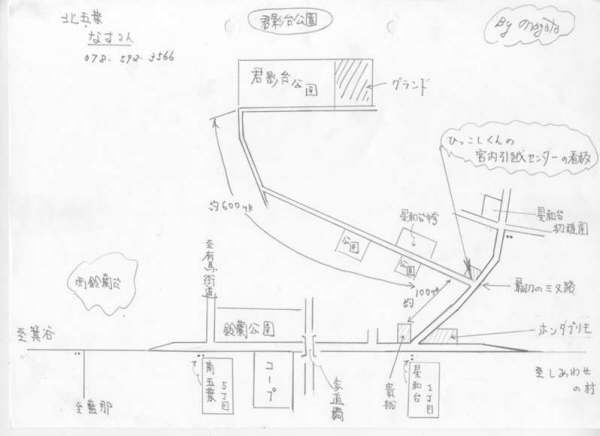 北五葉
君影台公園
By
078-592-3566
君影台公園
グランド
ひっこしくんの
宮内引越センターの看板
約600m
星和台中学
星和台
幼稚園
公園
公園
至有馬街道
南鈴蘭台
約100m
最初の三叉路
鈴蘭公園
ホンダプリモ
至箕谷
至しあわせ
の村
南五葉
5丁目
コープ
歩道橋
星和台
1丁目